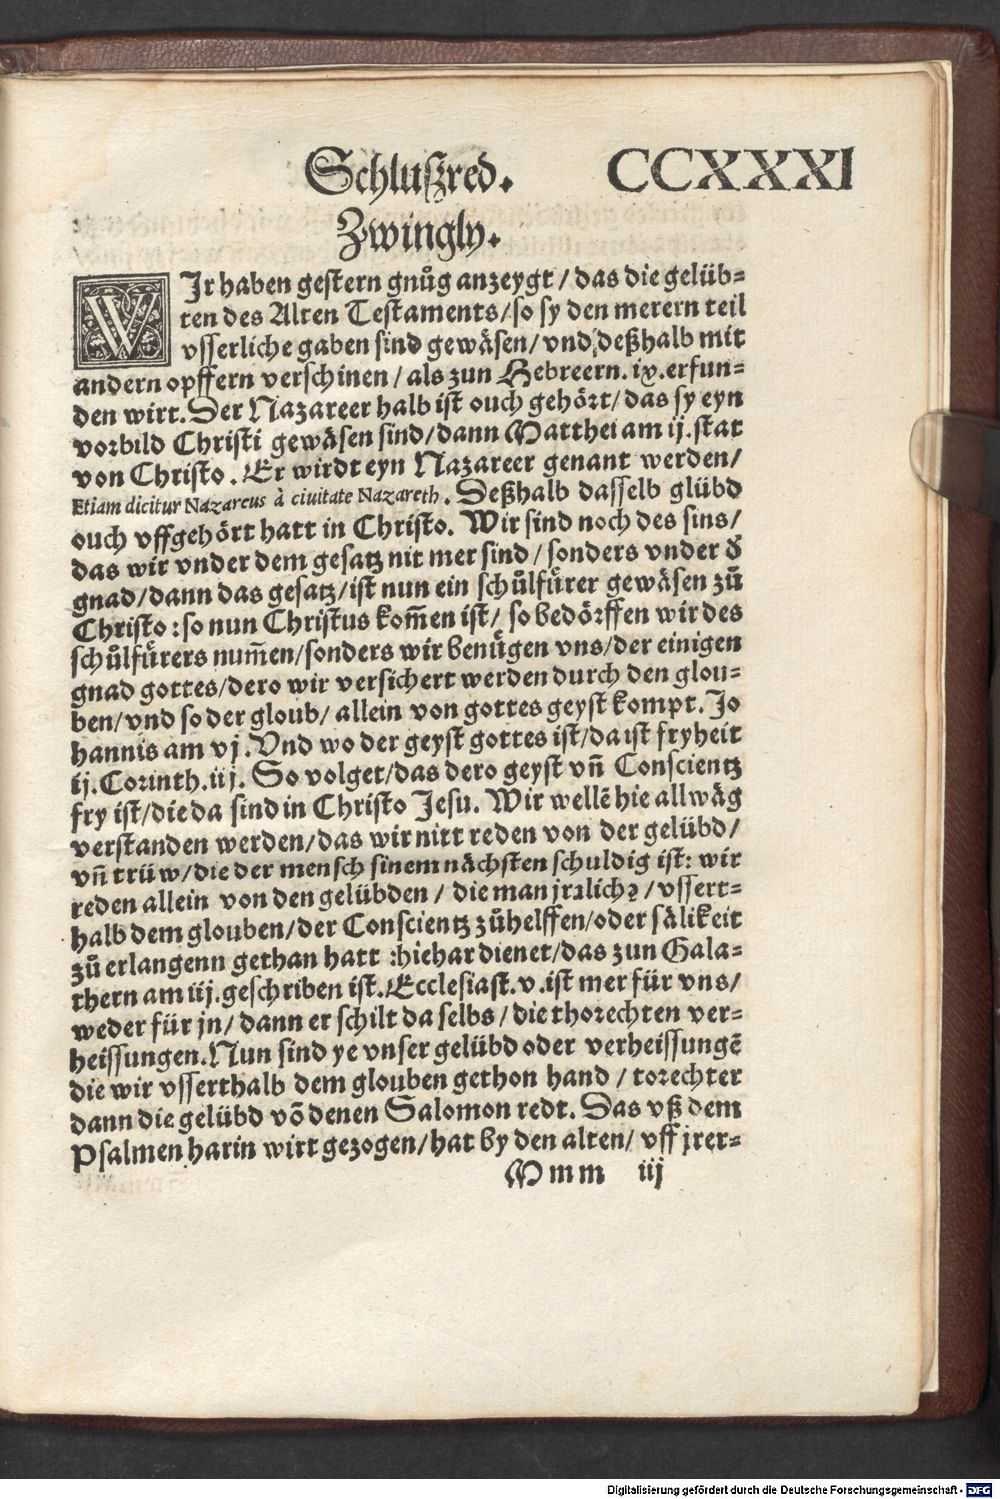 Schlußred. CCXXXI
Zwingly.
WIr haben gestern gnůg anzeygt / das die gelüb-
ten des Alten Testaments / so sy den merern teil
vsserliche gaben sind gewäsen / vnd deßhalb mit
andern opffern verschinen / als zun Hebreern. ix. erfun-
den wirt. Der Nazareer halb ist ouch gehört / das sy eyn
vorbild Christi gewäsen sind / dann Matthei am ij. stat
von Christo. Er wirdt eyn Nazareer genant werden /
Etiam dicitur Nazareus à ciuitate Nazareth. Deßhalb dasselb glübd
ouch vffgehört hatt in Christo. Wir sind noch des sins /
das wir vnder dem gesatz nit mer sind / sonders vnder d̃
gnad / dann das gesatz / ist nun ein schůlfürer gewäsen zů
Christo : so nun Christus kom̃en ist / so bedörffen wir des
schůlfürers num̃en / sonders wir benügen vns / der einigen
gnad gottes / dero wir versichert werden durch den glou-
ben / vnd so der gloub / allein von gottes geyst kompt. Jo
hannis am vj. Vnd wo der geyst gottes ist / da ist fryheit
ij. Corinth. iij. So volget / das dero geyst vñ Conscientz
fry ist / die da sind in Christo Jesu. Wir wellẽ hie allwäg
verstanden werden / das wir nitt reden von der gelübd /
vñ trüw / die der mensch sinem nächsten schuldig ist : wir
reden allein von den gelübden / die man jrꝛlichꝛ / vssert-
halb dem glouben / der Conscientz zůhelffen / oder sälikeit
zů erlangenn gethan hatt : hiehar dienet / das zun Gala-
thern am iij. geschriben ist. Ecclesiast. v. ist mer für vns /
weder für jn / dann er schilt da selbs / die thorechten ver-
heissungen. Nun sind ye vnser gelübd oder verheissungẽ
die wir vsserthalb dem glouben gethon hand / torechter
dann die gelübd võ denen Salomon redt. Das vß dem
Psalmen harin wirt gezogen / hat by den alten / vff jrer-
Mmm iij
Digitalisierung gefördert durch die Deutsche Forschungsgemeinschaft - DFG